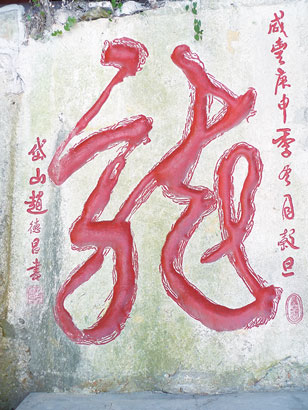 咸豐庚申季冬月穀旦
龍
岱山趙德昌書